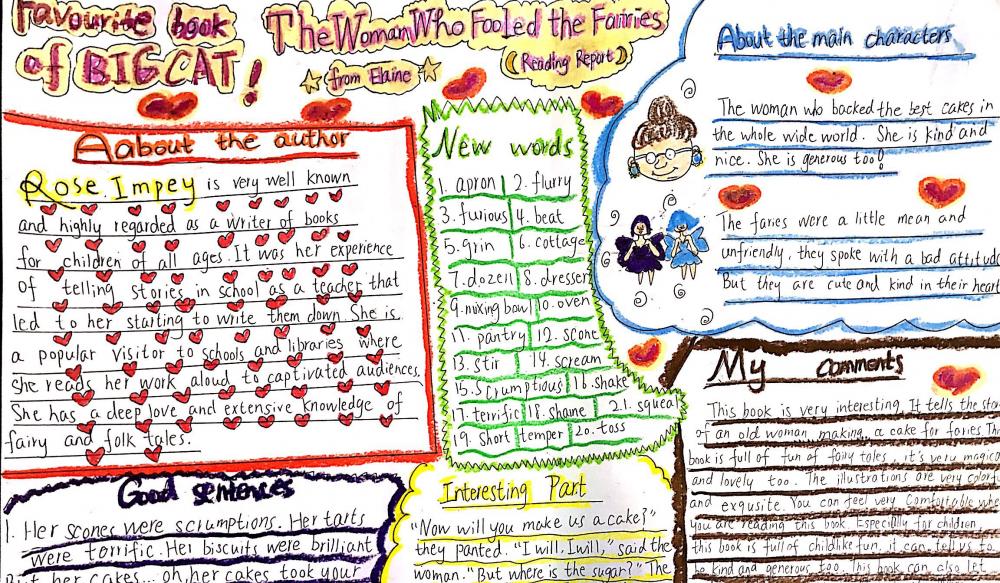 Favourite book
of BIG CAT!
The Woman Who Fooled the Fairies
from Elaine
(Reading Report)
Aabout the author
Rose Impey is very well known
and highly regarded as a writer of books
for children of all ages. It was her experience
of telling stories in school as a teacher that
led to her starting to write them down. She is
a popular visitor to schools and libraries where
she reads her work aloud to captivated audiences.
She has a deep love and extensive knowledge of
fairy and folk tales.
New words
1. apron 2. flurry
3. furious 4. beat
5. grin 6. cottage
7. dozen 8. dresser
9. mixing bowl 10. oven
11. pantry 12. scone
13. stir 14. scream
15. scrumptious 16. shake
17. terrific 18. shame 21. squeal
19. short temper 20. toss
About the main characters
The woman who backed the best cakes in
the whole wide world. She is kind and
nice. She is generous too!
The faries were a little mean and
unfriendly, they spoke with a bad attitud
But they are cute and kind in their heart
My comments
This book is very interesting. It tells the stor
of an old woman making a cake for faries. Th
book is full of fun of faity tales, it's very magica
and lovely too. The illustrations are very colorf
and exqusite. You can feel very comfortable whe
you are reading this book. Especially for children,
this book is full of childlike fun, it can tell us to
be kind and generous too. This book can also let
Good sentences
1. Her scones were scrumptions. Her tarts
were terrific. Her biscuits were brilliant
But her cakes... oh, her cakes took your
Interesting Part
"Now will you make us a cake?"
they panted. "I will, I will," said the
woman. "But where is the sugar?" The